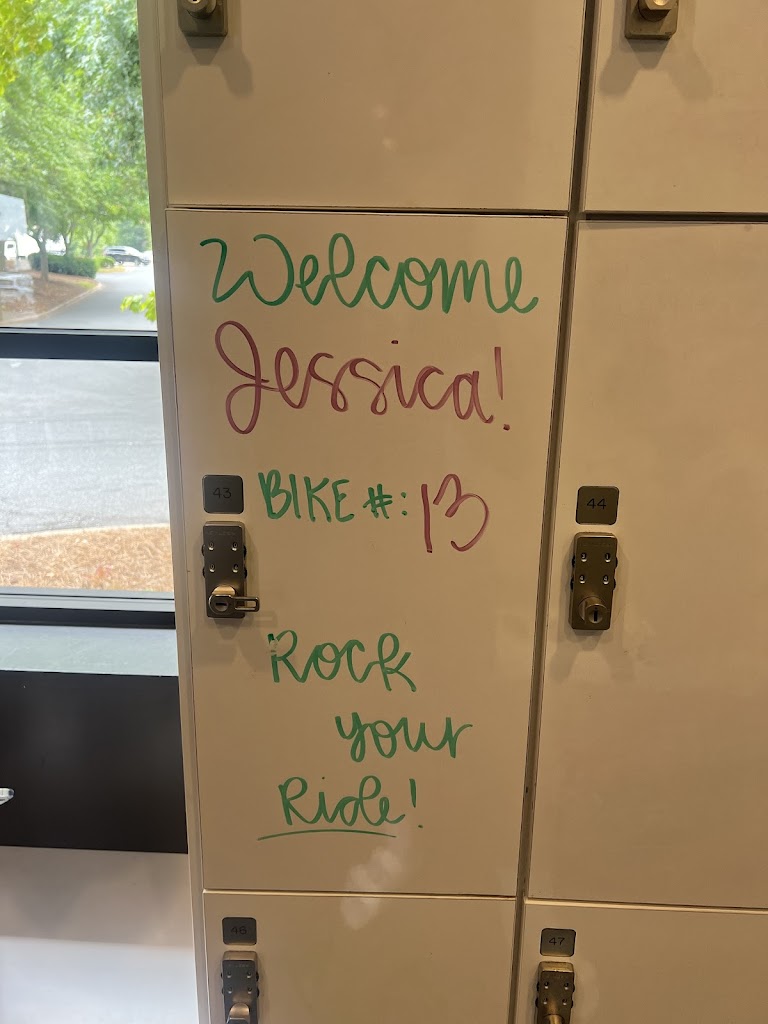 Welcome
Jessica!
43
BIKE #: 13
44
Rock
your
Ride!
46
47